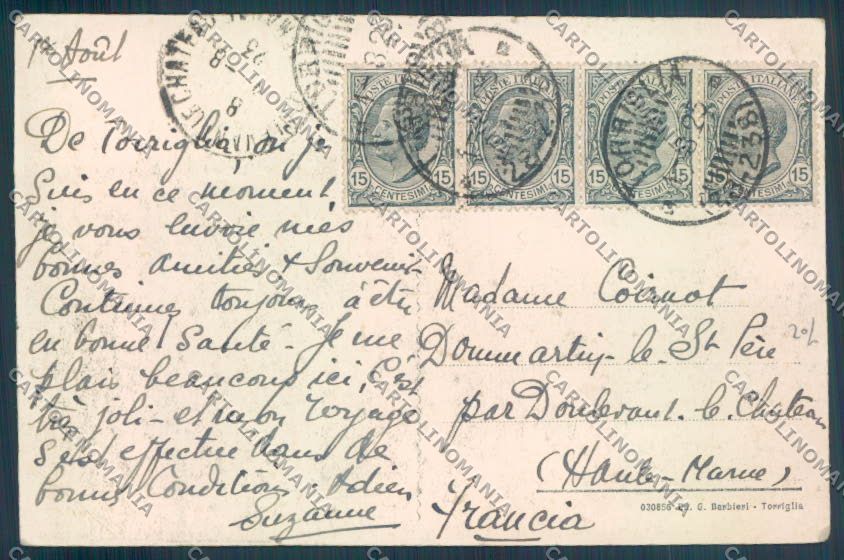 1er Août
De Torriglia, où je
suis en ce moment
je vous envoie mes
bonnes amitiés & Souvenir.
Continuez toujours à être
en bonne Santé. Je me
plais beaucoup ici, C'est
très joli - et mon voyage
s'est effectué dans de
bonnes Conditions. Adieu
Suzanne
POSTE ITALIANE
15 CENTESIMI 15
POSTE ITALIANE
15 CENTESIMI 15
POSTE ITALIANE
15 CENTESIMI 15
POSTE ITALIANE
15 CENTESIMI 15
TORRIGLIA
Madame Coirnot
Dommartin-le-St Père
par Doulevant-le-Château
(Haute-Marne)
Francia
030856 Ed. G. Barbieri - Torriglia
CARTOLINOMANIA